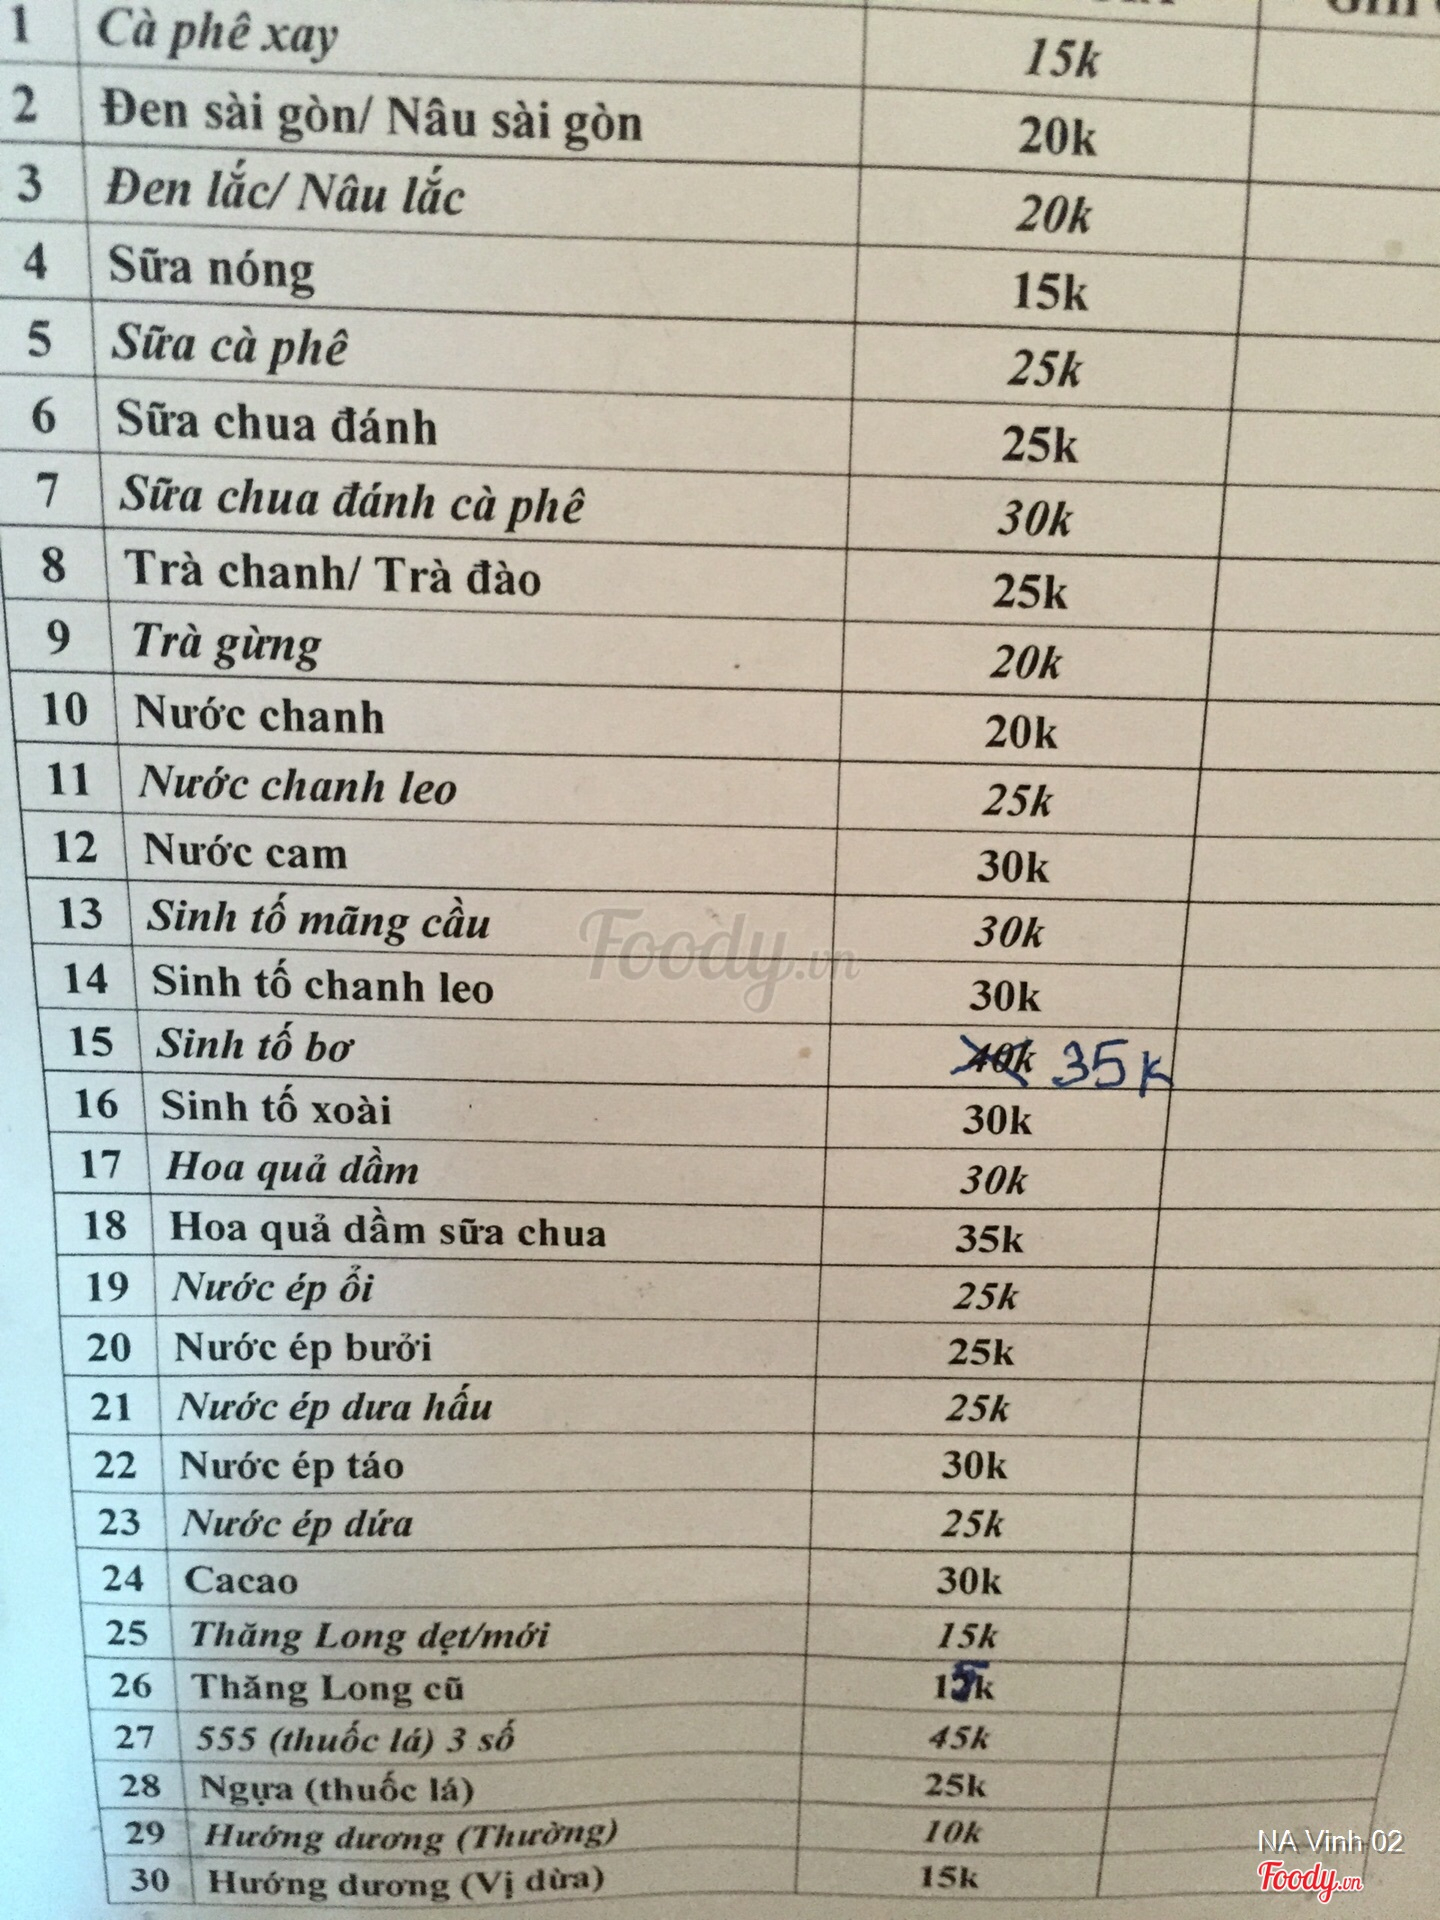 1 Cà phê xay 15k
2 Đen sài gòn/ Nâu sài gòn 20k
3 Đen lắc/ Nâu lắc 20k
4 Sữa nóng 15k
5 Sữa cà phê 25k
6 Sữa chua đánh 25k
7 Sữa chua đánh cà phê 30k
8 Trà chanh/ Trà đào 25k
9 Trà gừng 20k
10 Nước chanh 20k
11 Nước chanh leo 25k
12 Nước cam 30k
13 Sinh tố mãng cầu 30k
Foody.vn
14 Sinh tố chanh leo 30k
15 Sinh tố bơ 40k 35k
16 Sinh tố xoài 30k
17 Hoa quả dầm 30k
18 Hoa quả dầm sữa chua 35k
19 Nước ép ổi 25k
20 Nước ép bưởi 25k
21 Nước ép dưa hấu 25k
22 Nước ép táo 30k
23 Nước ép dứa 25k
24 Cacao 30k
25 Thăng Long dẹt/mới 15k
26 Thăng Long cũ 15k
27 555 (thuốc lá) 3 số 45k
28 Ngựa (thuốc lá) 25k
29 Hướng dương (Thường) 10k
30 Hướng dương (Vị dừa) 15k
NA Vinh 02
Foody.vn